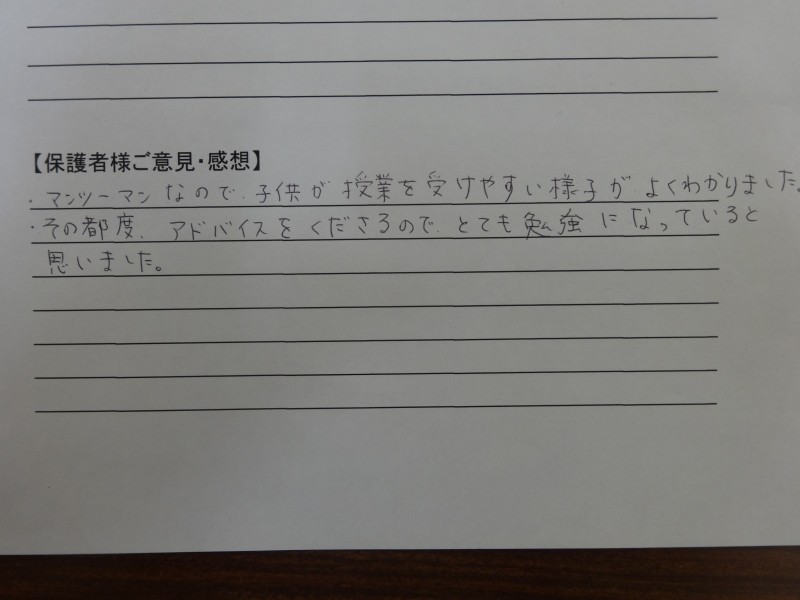 【保護者様ご意見・感想】
・マンツーマンなので、子供が授業を受けやすい様子が、よくわかりました。
・その都度、アドバイスをくださるので、とても勉強になっていると
思いました。